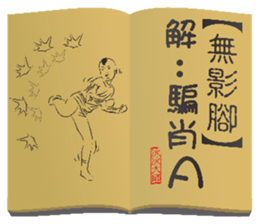 【無影腳】
解：騙肖A